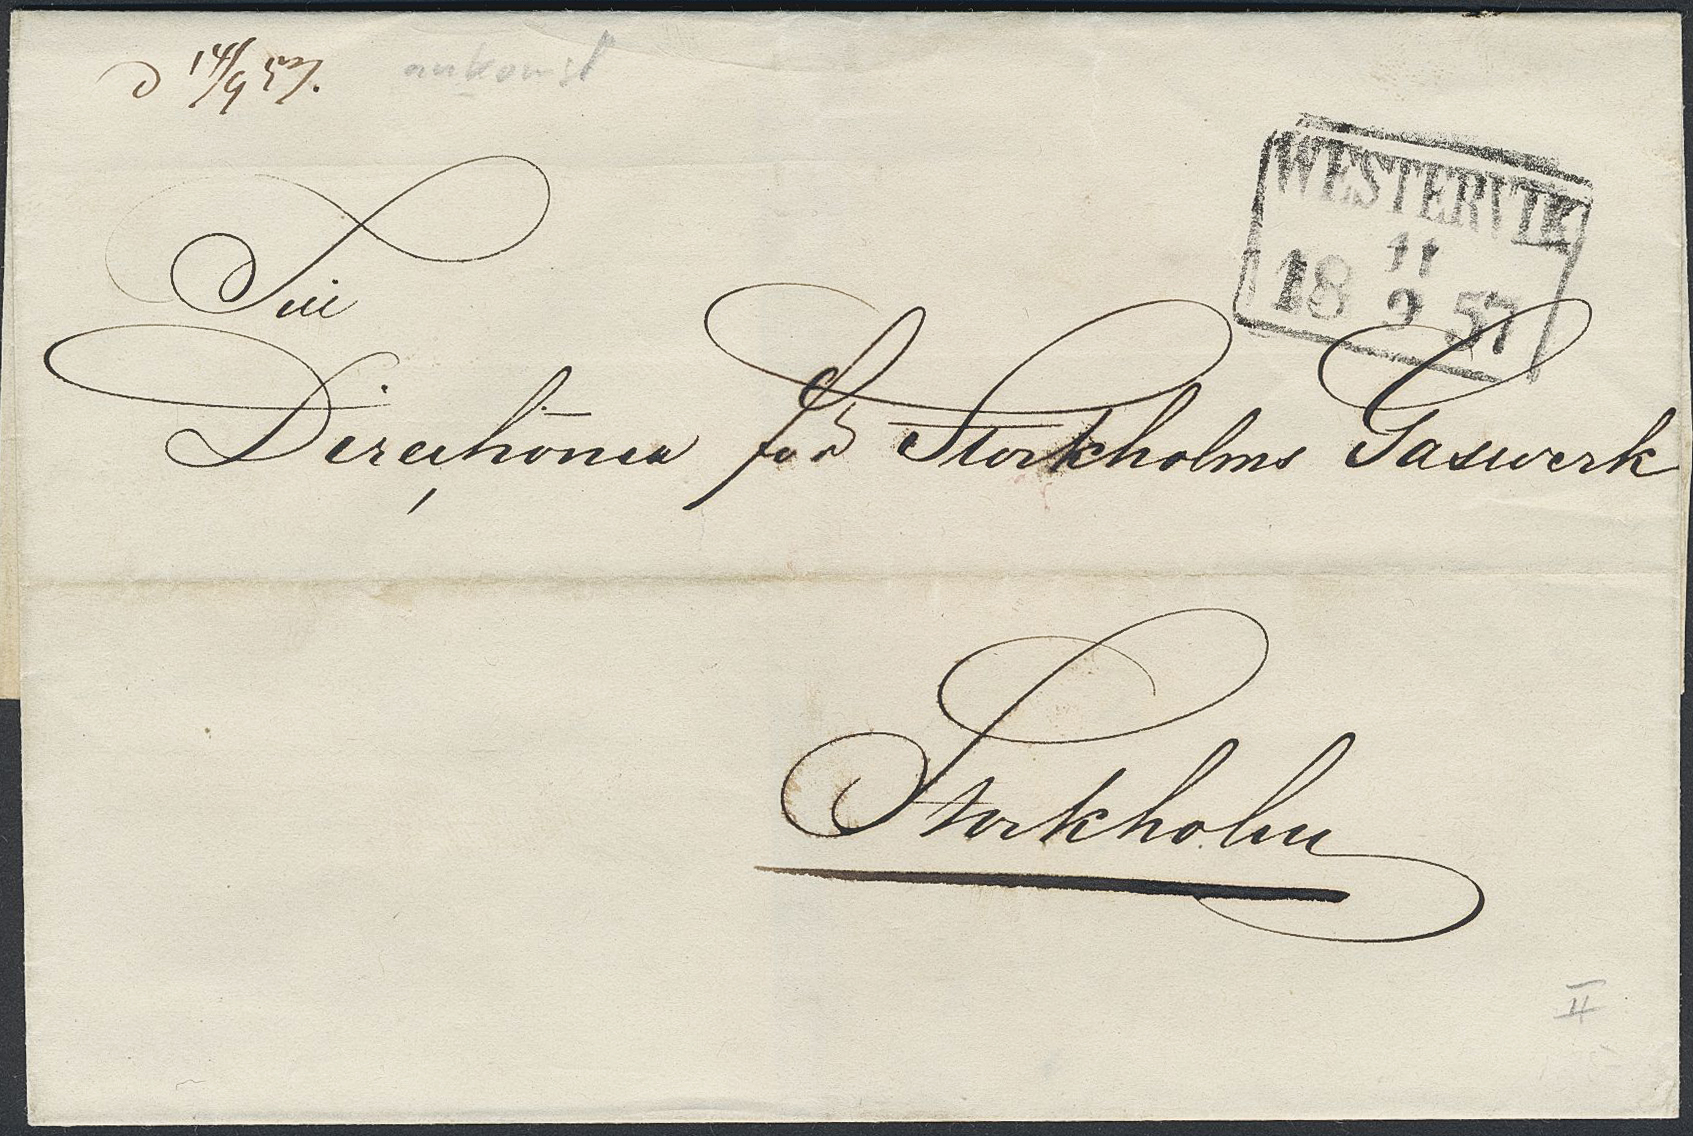 d 14/9 57.
ankomst
WESTERVIK
11
18 9 57
Till
Directionen för Stockholms Gaswerk
Stockholm
II